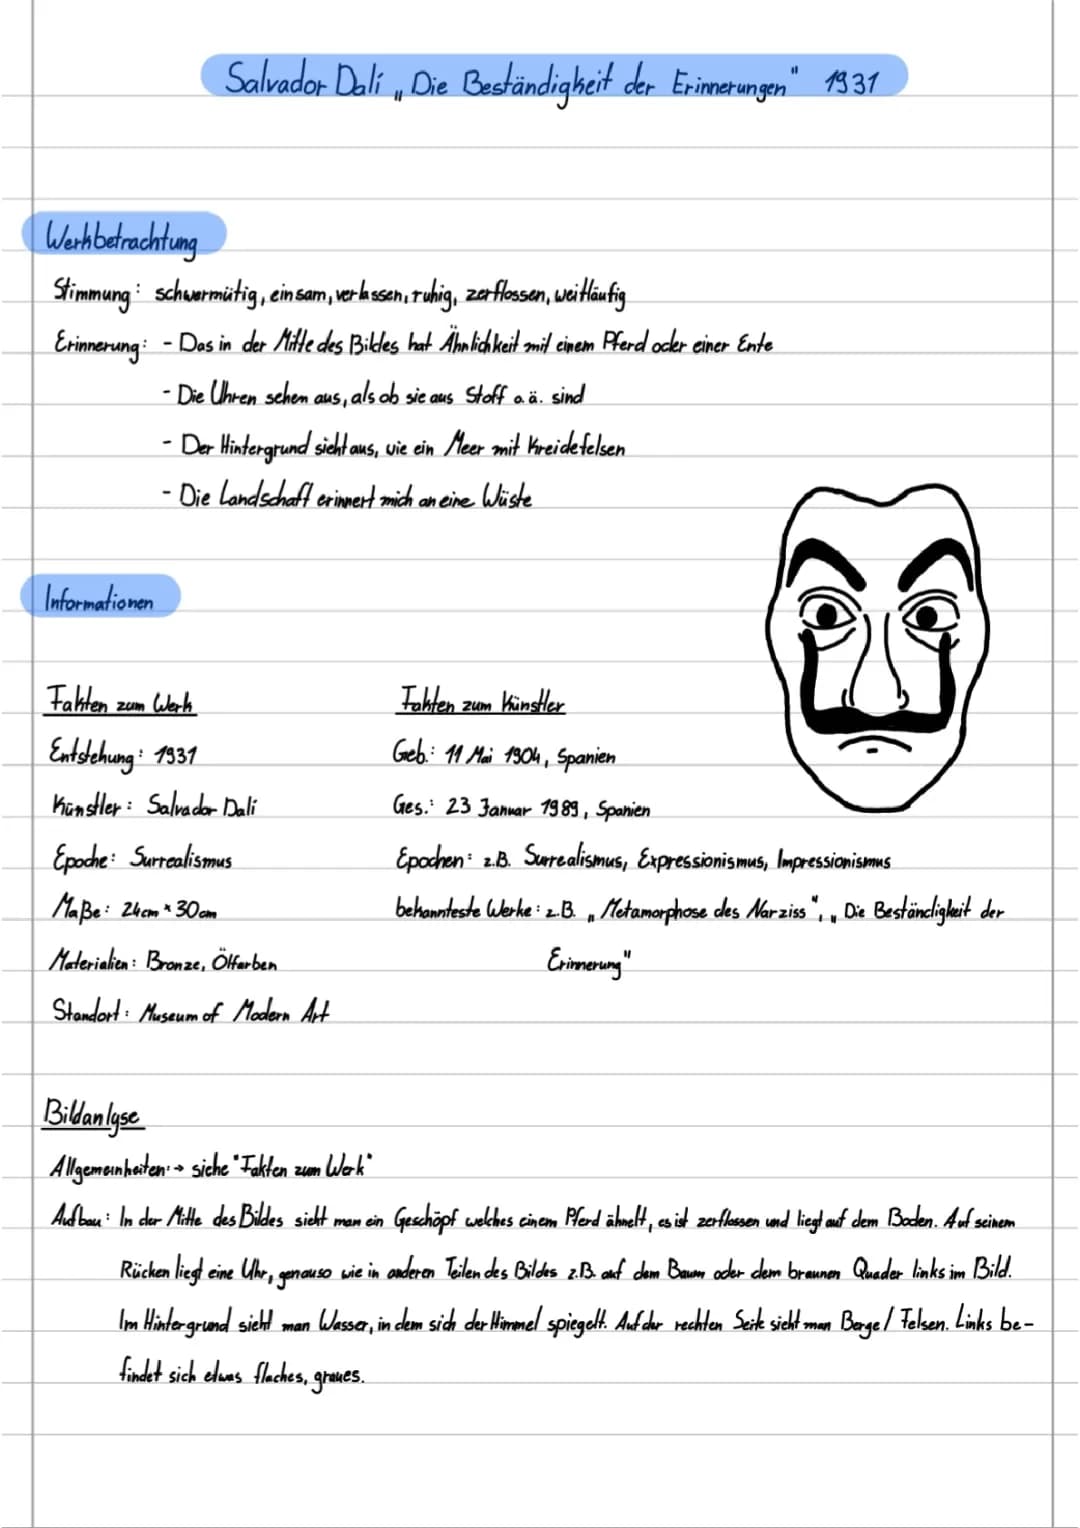 Salvador Dalí „Die Beständigkeit der Erinnerungen" 1931
Werkbetrachtung
Stimmung: schwermütig, einsam, verlassen, ruhig, zerflossen, weitläufig
Erinnerung: - Das in der Mitte des Bildes hat Ähnlichkeit mit einem Pferd oder einer Ente
- Die Uhren sehen aus, als ob sie aus Stoff o.ä. sind
- Der Hintergrund sieht aus, wie ein Meer mit Kreidefelsen
- Die Landschaft erinnert mich an eine Wüste
Informationen
Fakten zum Werk
Entstehung: 1931
Künstler: Salvador Dalí
Epoche: Surrealismus
Maße: 24cm × 30cm
Materialien: Bronze, Ölfarben
Standort: Museum of Modern Art
Fakten zum Künstler
Geb.: 11 Mai 1904, Spanien
Ges.: 23 Januar 1989, Spanien
Epochen: z.B. Surrealismus, Expressionismus, Impressionismus
bekannteste Werke: z.B. „Metamorphose des Narziss", „Die Beständigkeit der
Erinnerung"
Bildanlyse
Allgemeinheiten: → siehe "Fakten zum Werk"
Aufbau: In der Mitte des Bildes sieht man ein Geschöpf welches einem Pferd ähnelt, es ist zerflossen und liegt auf dem Boden. Auf seinem
Rücken liegt eine Uhr, genauso wie in anderen Teilen des Bildes z.B. auf dem Baum oder dem braunen Quader links im Bild.
Im Hintergrund sieht man Wasser, in dem sich der Himmel spiegelt. Auf der rechten Seite sieht man Berge/Felsen. Links be-
findet sich etwas flaches, graues.